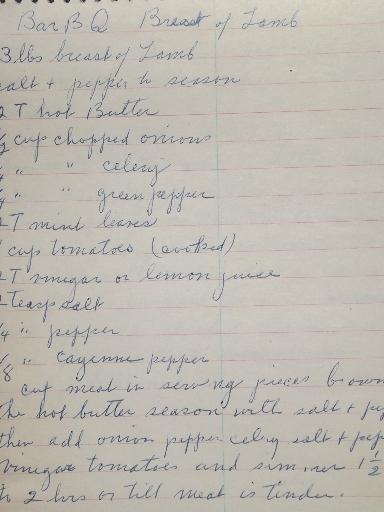 Bar B Q Breast of Lamb
3 lbs breast of Lamb
salt + pepper to season
2 T hot Butter
½ cup chopped onions
" " celery
" " green pepper
T mint leaves
cup tomatoes (cooked)
T vinegar or lemon juice
Teasp salt
¼ " pepper
⅛ " cayenne pepper
cut meat in serving pieces brown
the hot butter season with salt + pep
then add onion pepper celery salt + pep
vinegar tomatoes and simmer 1½
to 2 hrs or till meat is tinder.